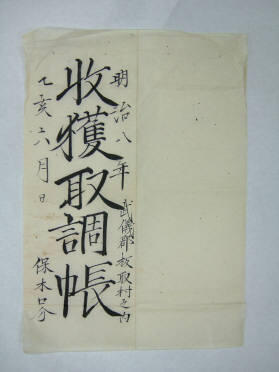 明治八年 武儀郡板取村之内
收獲取調帳
乙亥六月日 保木口分